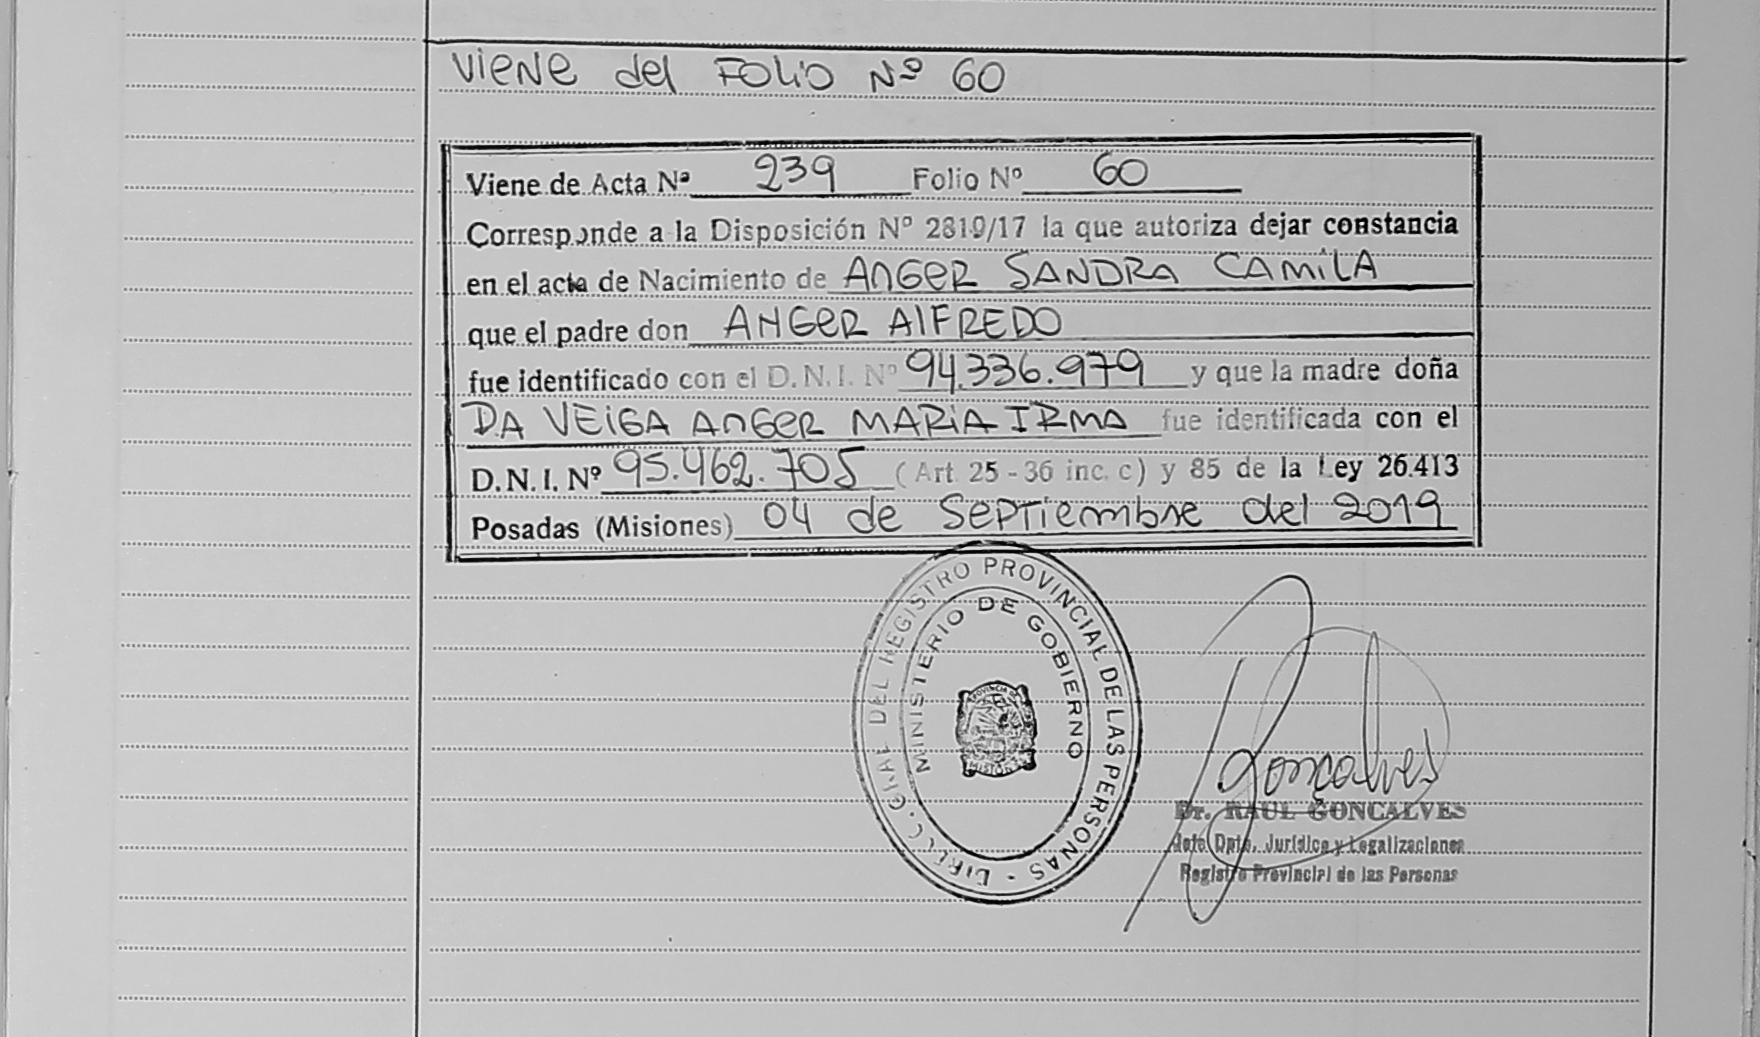 Viene del FOLIO Nº 60
Viene de Acta Nº 239 Folio Nº 60
Corresponde a la Disposición Nº 2819/17 la que autoriza dejar constancia
en el acta de Nacimiento de ANGER SANDRA CAMILA
que el padre don ANGER AlFREDO
fue identificado con el D.N.I. Nº 94.336.979 y que la madre doña
DA VEIGA ANGER MARIA IRMA fue identificada con el
D.N.I. Nº 95.462.705 (Art 25 - 36 inc. c) y 85 de la Ley 26.413
Posadas (Misiones) 04 de Septiembre del 2019
DIRECC. GRAL DEL REGISTRO PROVINCIAL DE LAS PERSONAS -
MINISTERIO DE GOBIERNO
PROVINCIA DE
MISIONES
Gonçalves
Dr. RAUL GONCALVES
Jefe Dpto. Jurídico y Legalizaciones
Registro Provincial de las Personas